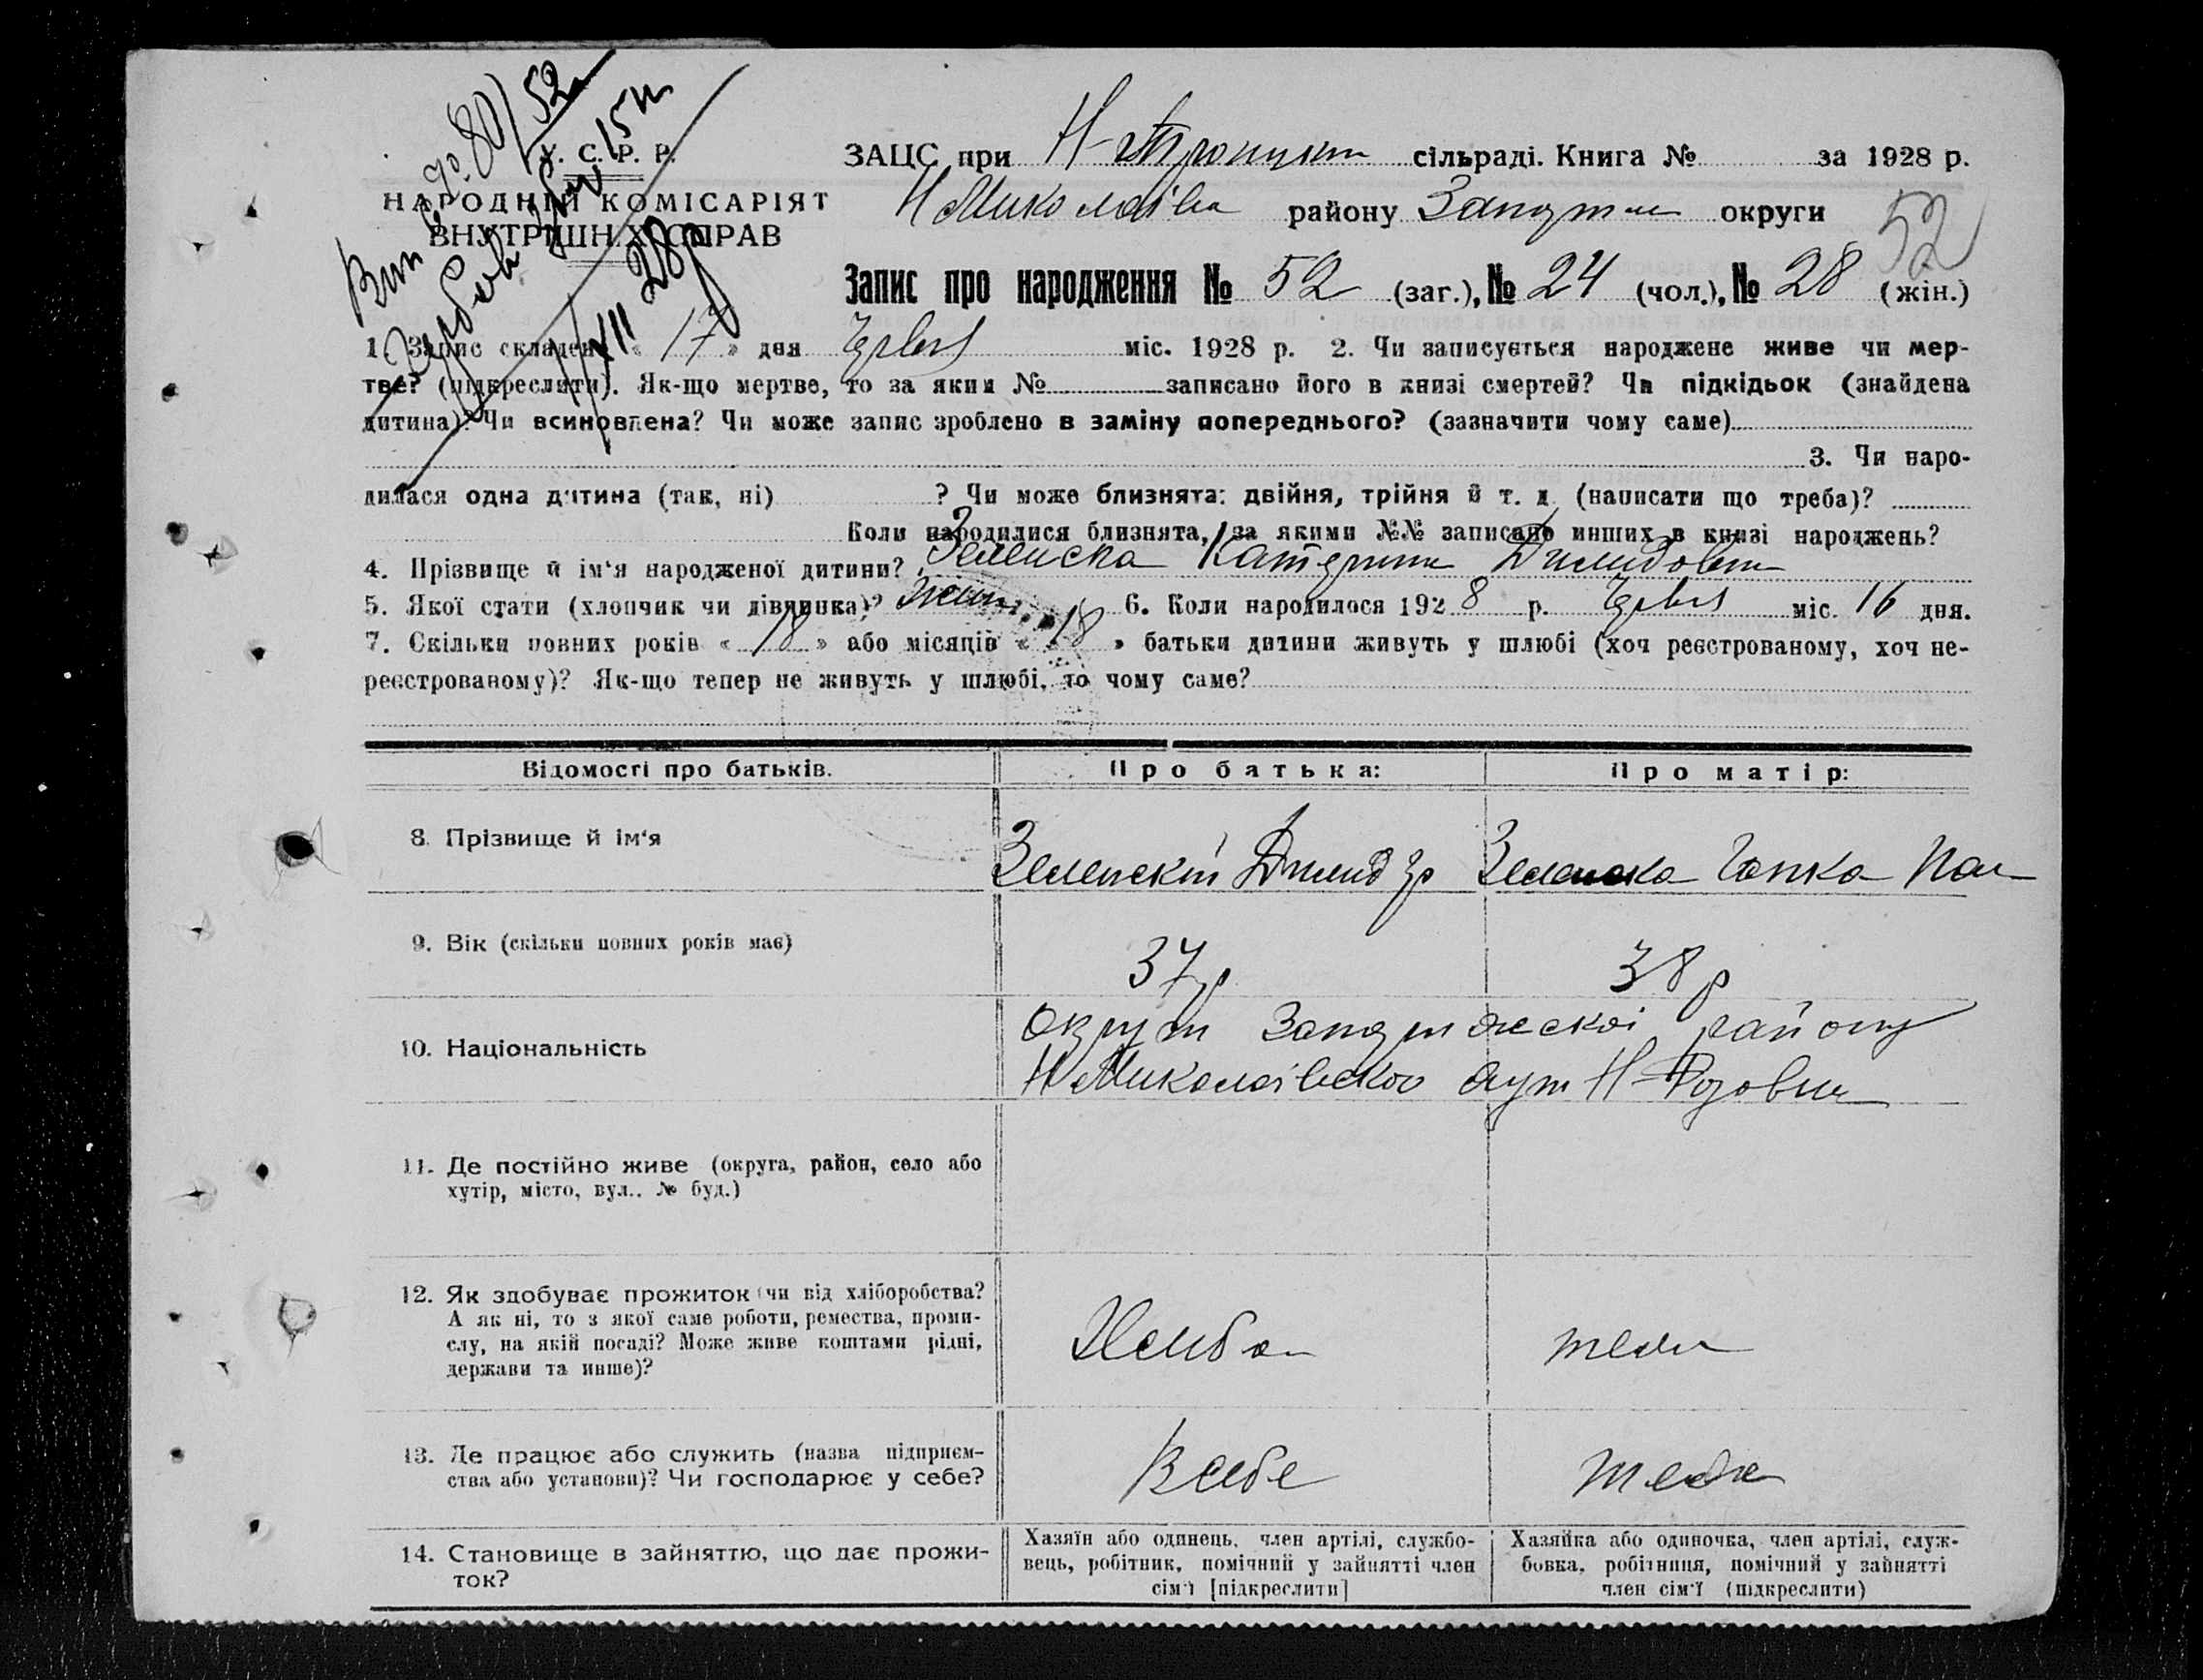 У. С. Р. Р.
НАРОДНІЙ КОМІСАРІЯТ
ВНУТРІШНІХ СПРАВ
80/52
ЗАЦС при сільраді. Книга № за 1928 р.
Н Миколаївс району Запоріж округи
52
Запис про народження № 52 (заг.), № 24 (чол.), № 28 (жін.)
1. Запис складено « 17 » дня міс. 1928 р. 2. Чи записується народжене живе чи мер-
тве? (підкреслити). Як-що мертве, то за яким № записано його в книзі смертей? Чи підкідьок (знайдена
дитина)? Чи всиновлена? Чи може запис зроблено в заміну попереднього? (зазначити чому саме)
3. Чи наро-
дилася одна дитина (так, ні) ? Чи може близнята: двійня, трійня й т. д. (написати що треба)?
Коли народилися близнята, за якими №№ записано инших в книзі народжень?
4. Прізвище й ім'я народженої дитини? Зеленска Катерина
5. Якої стати (хлопчик чи дівчинка)? 6. Коли народилося 1928 р. міс. 16 дня.
7. Скільки повних років « 18 » або місяців « 18 » батьки дитини живуть у шлюбі (хоч реєстрованому, хоч не-
реєстрованому)? Як-що тепер не живуть у шлюбі, то чому саме?
Відомості про батьків. Про батька: Про матір:
8. Прізвище й ім'я Зеленскій Зеленска Гапка
9. Вік (скільки повних років має) 37 р 38 р
10. Національність
округи району
Н Миколаівского хут
11. Де постійно живе (округа, район, село або
хутір, місто, вул., № буд.)
12. Як здобуває прожиток (чи від хліборобства?
А як ні, то з якої саме роботи, ремества, проми-
слу, на якій посаді? Може живе коштами рідні,
держави та инше)?
13. Де працює або служить (назва підприєм-
ства або установи)? Чи господарює у себе? В себе теж
14. Становище в зайняттю, що дає прожи-
ток?
Хазяїн або одинець, член артілі, службо-
вець, робітник, помічний у зайнятті член
сім'ї [підкреслити]
Хазяйка або одиночка, член артілі, служ-
бовка, робітниця, помічний у зайнятті
член сім'ї (підкреслити)